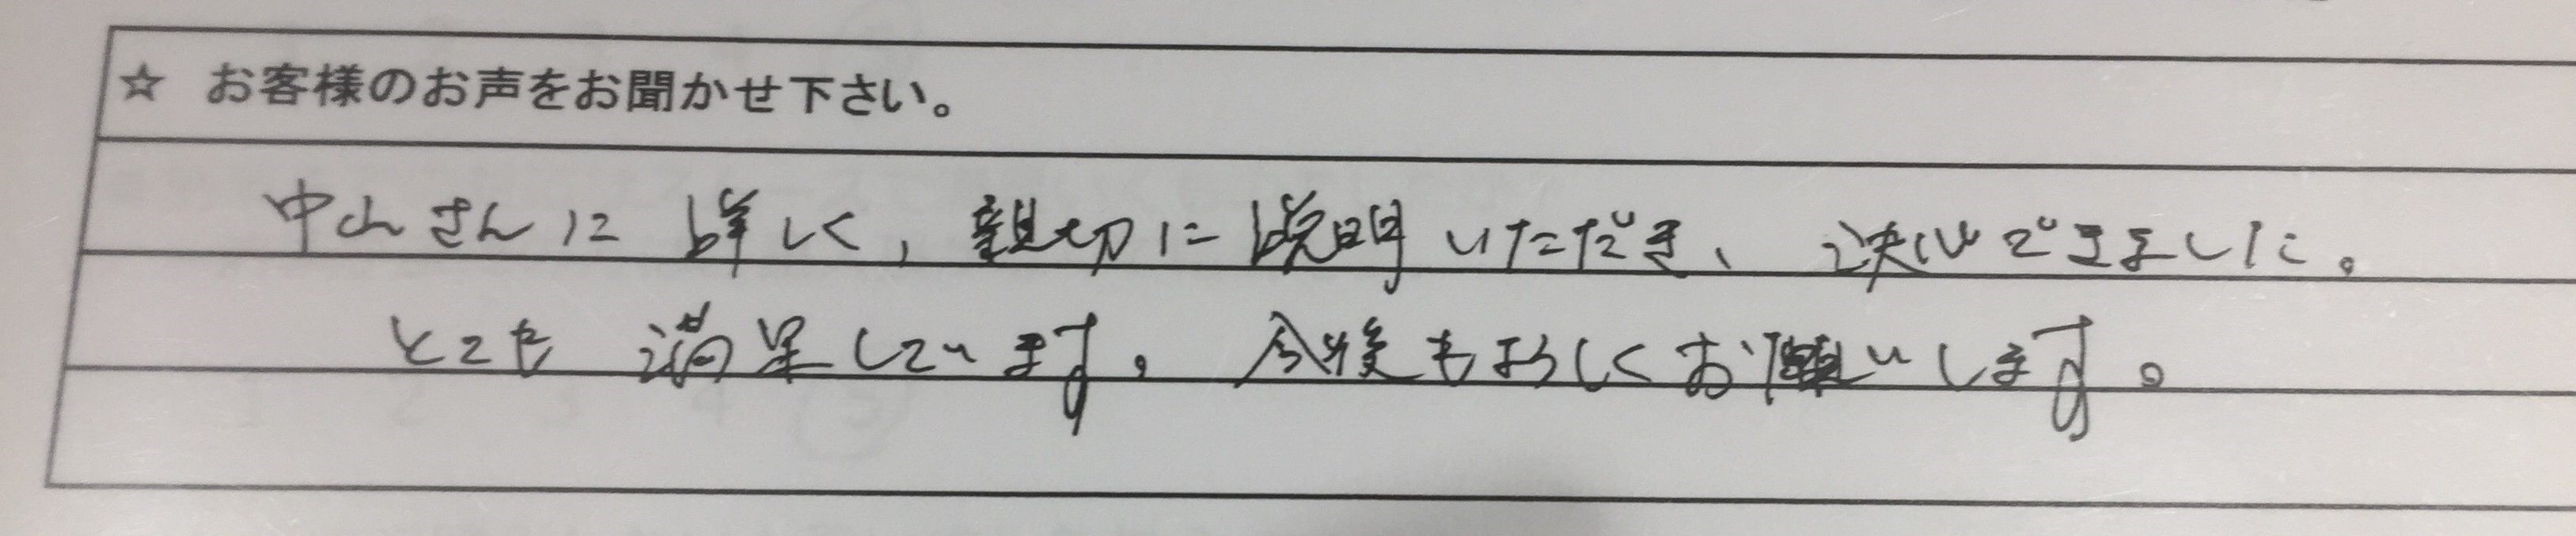 ☆ お客様のお声をお聞かせ下さい。
中山さんに詳しく、親切に説明いただき、決心できました。
とても満足しています。今後もよろしくお願いします。